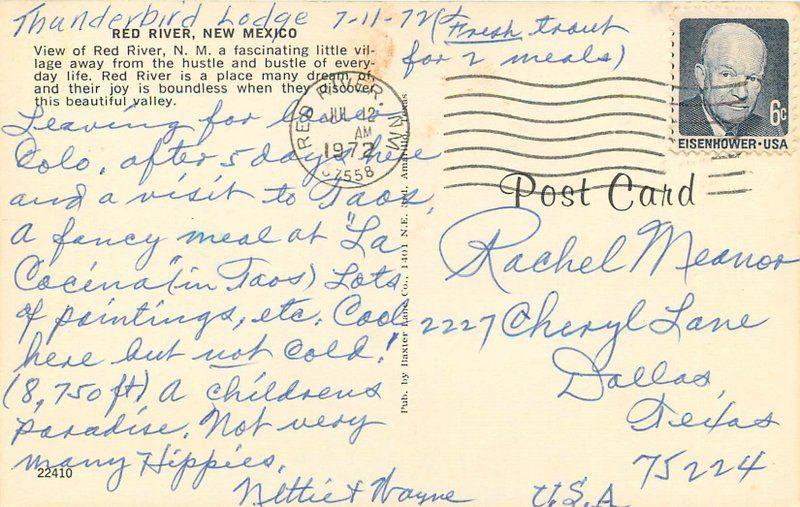 Thunderbird Lodge 7-11-72
RED RIVER, NEW MEXICO
View of Red River, N. M. a fascinating little vil-
lage away from the hustle and bustle of every-
day life. Red River is a place many dream of
and their joy is boundless when they discover
this beautiful valley.
(Fresh trout
for 2 meals)
Leaving for
Colo. after 5 days here
and a visit to Taos,
A fancy meal at "La
Cocina" (in Taos) Lots
of paintings, etc. Cool
here but not cold!
(8,750 ft) A childrens
paradise. Not very
many Hippies.
Nettie & Wayne
22410
Pub. by Baxter Lane Co., 1401 N.E. 3rd, Amarillo, Texas
RED RIVER, N.M.
JUL 12
AM
1972
87558
6c
EISENHOWER·USA
Post Card
Rachel Meanor
2227 Cheryl Lane
Dallas,
Texas
75224
U.S.A